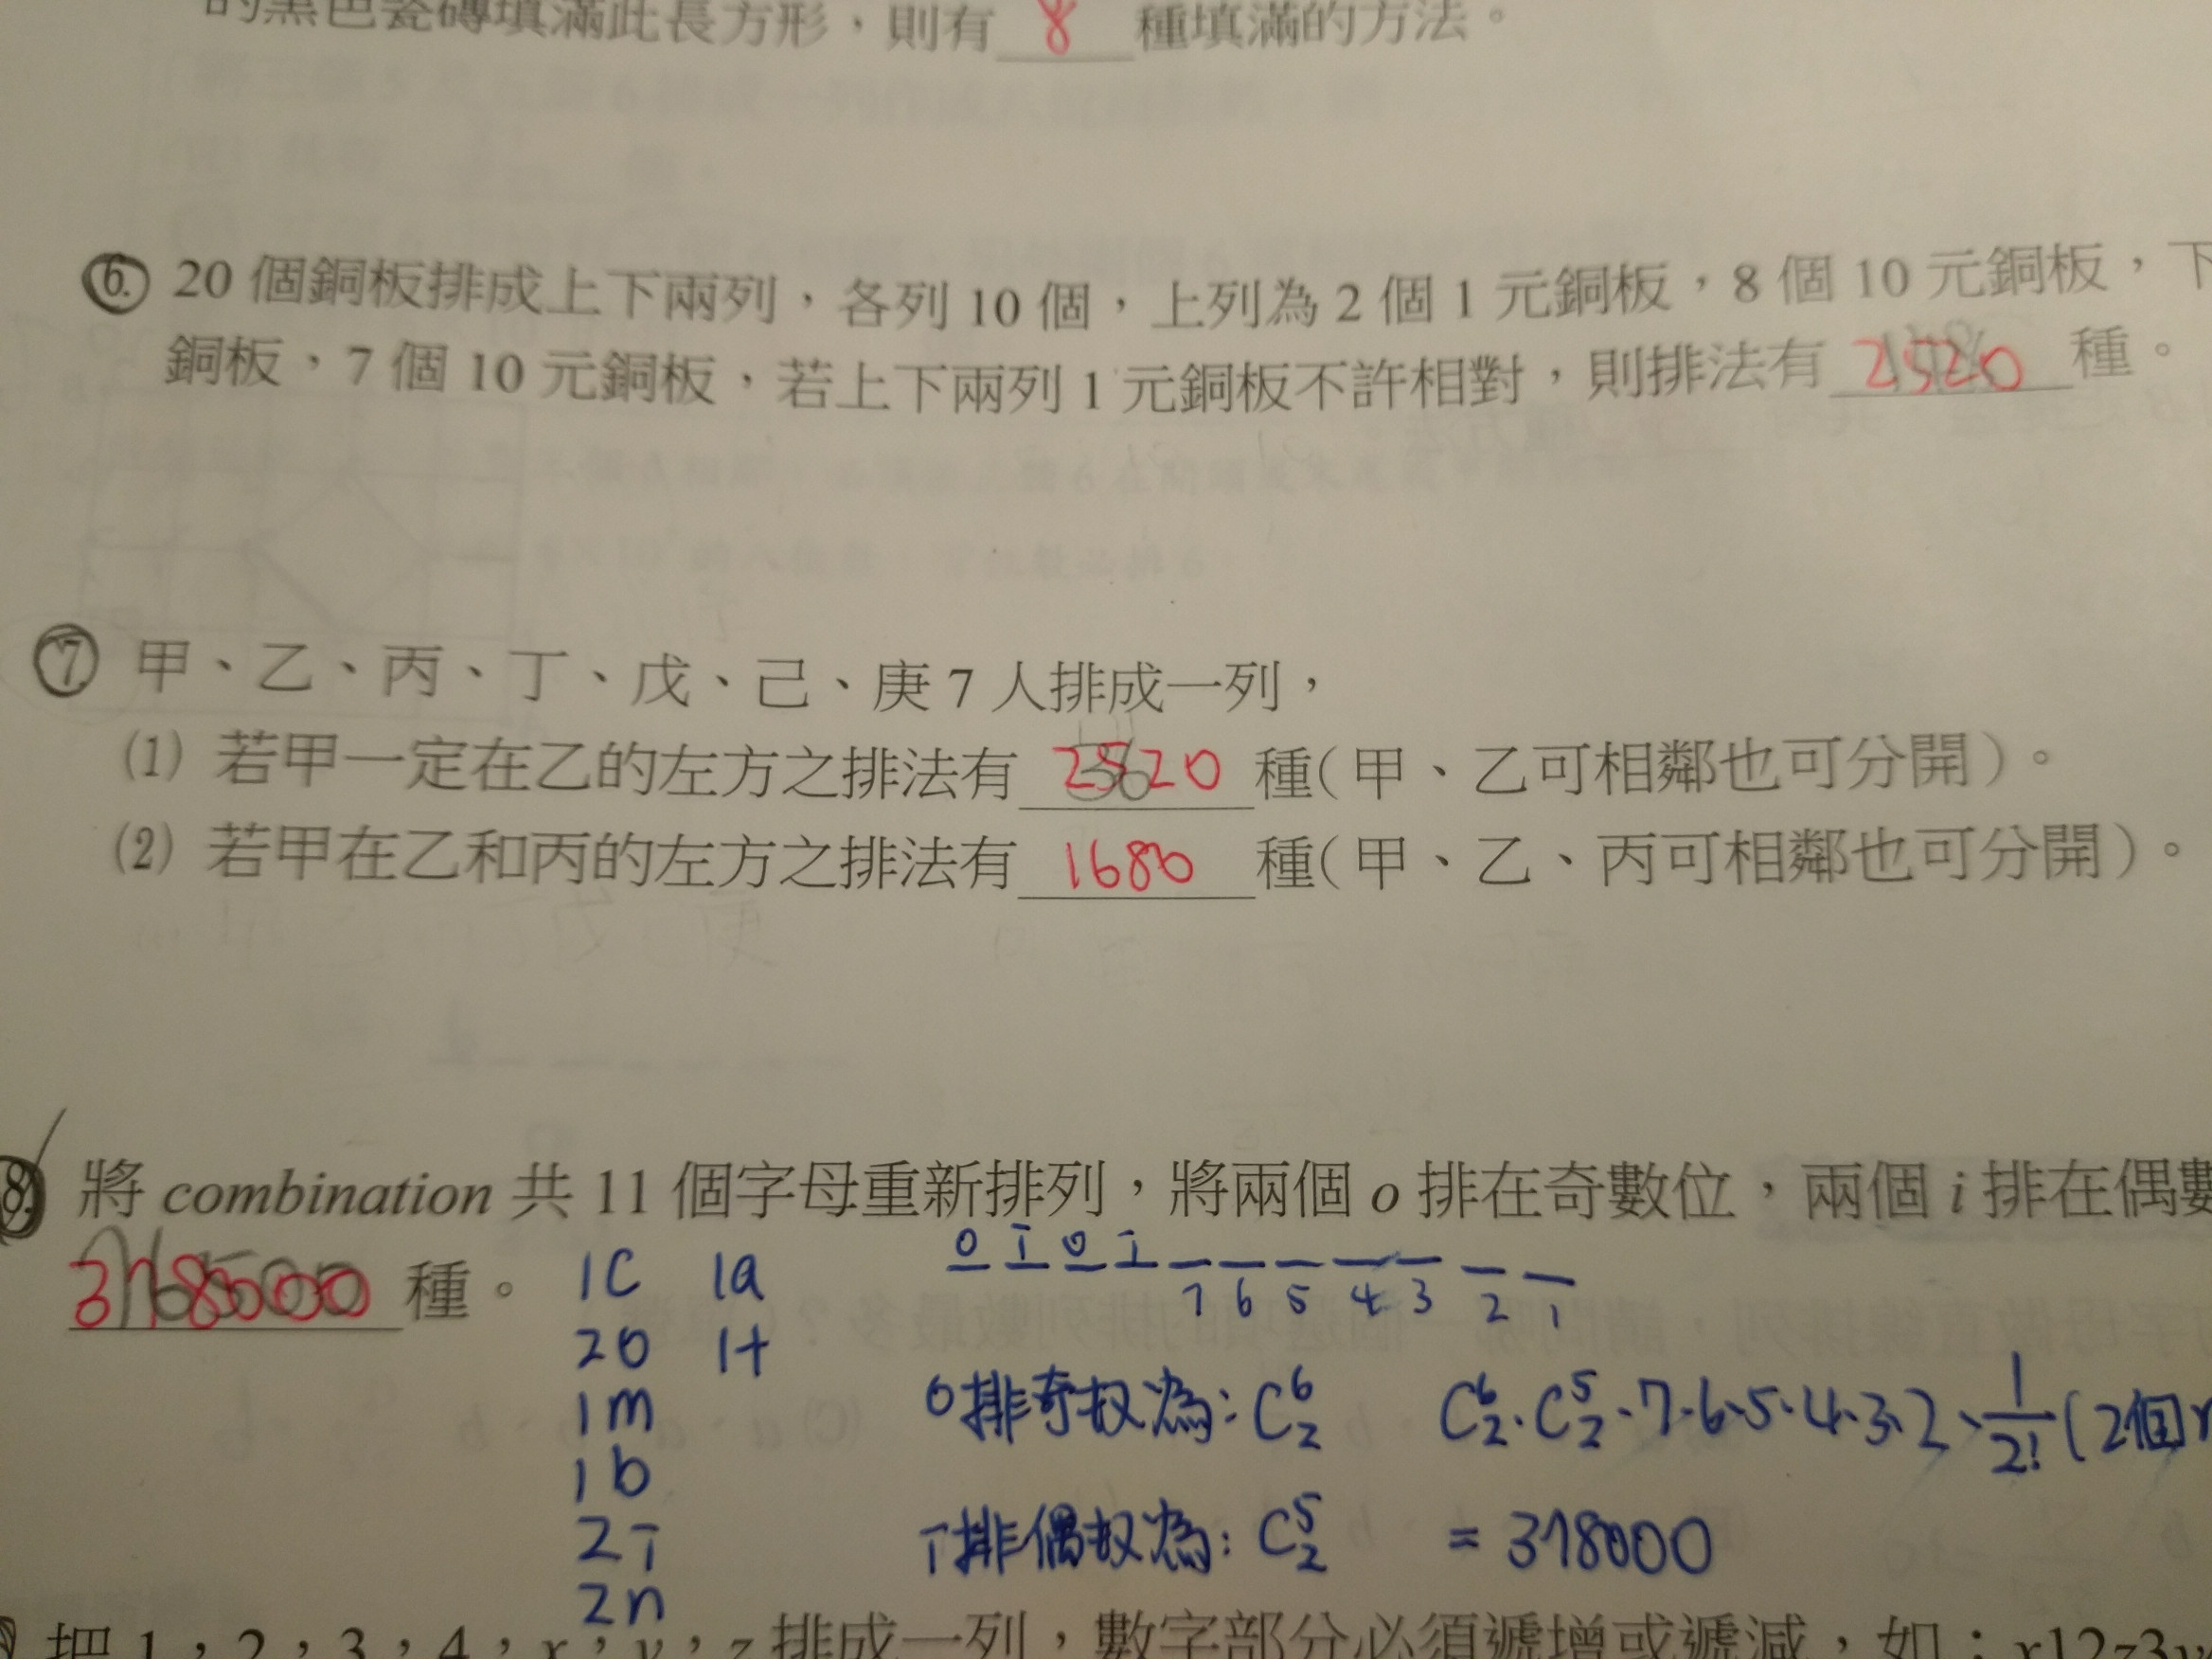 的黑色瓷磚填滿此長方形，則有 8 種填滿的方法。
6. 20 個銅板排成上下兩列，各列 10 個，上列為 2 個 1 元銅板，8 個 10 元銅板，下
銅板，7 個 10 元銅板，若上下兩列 1 元銅板不許相對，則排法有 2520 種。
7. 甲、乙、丙、丁、戊、己、庚 7 人排成一列，
(1) 若甲一定在乙的左方之排法有 2520 種（甲、乙可相鄰也可分開）。
(2) 若甲在乙和丙的左方之排法有 1680 種（甲、乙、丙可相鄰也可分開）。
8. 將 combination 共 11 個字母重新排列，將兩個 o 排在奇數位，兩個 i 排在偶數
378000 種。
1C 1a
2o 1t
1m
1b
2i
2n
o i o i
7 6 5 4 3 2 1
o排奇奴為: C⁶₂ C⁶₂·C⁵₂·7·6·5·4·3·2·1/2! (2個
i排偶奴為: C⁵₂ = 378000
把 1，2，3，4，x，y，z 排成一列，數字部分必須遞增或遞減，如：x12z3y